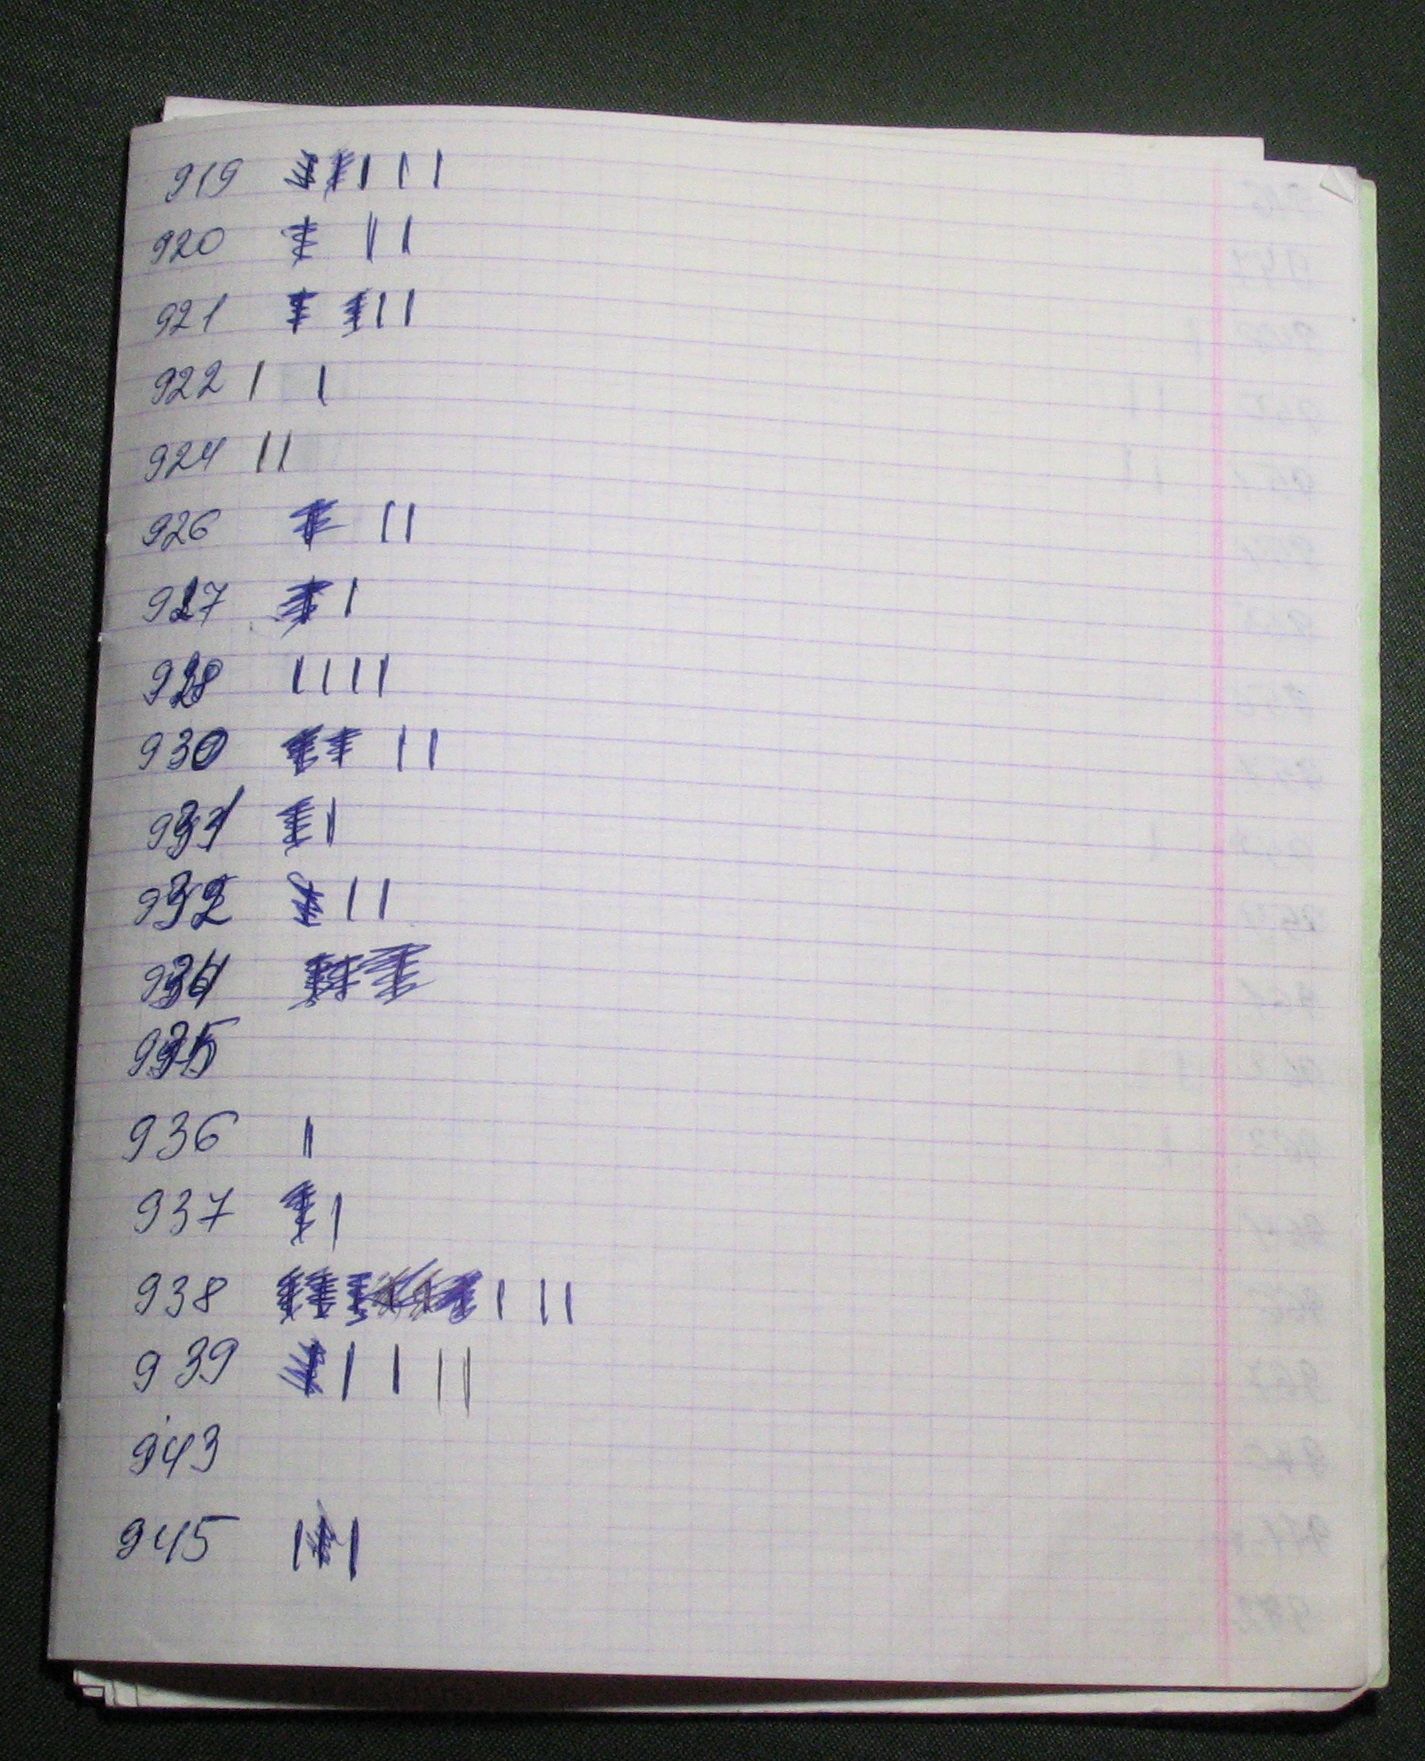 919 | | |
920 | |
921 | |
922 | |
924 | |
926 | |
927 |
928 | | | |
930 | |
931 |
932 | |
934
935
936 |
937 |
938 | | |
939 | | | |
943
945 | |